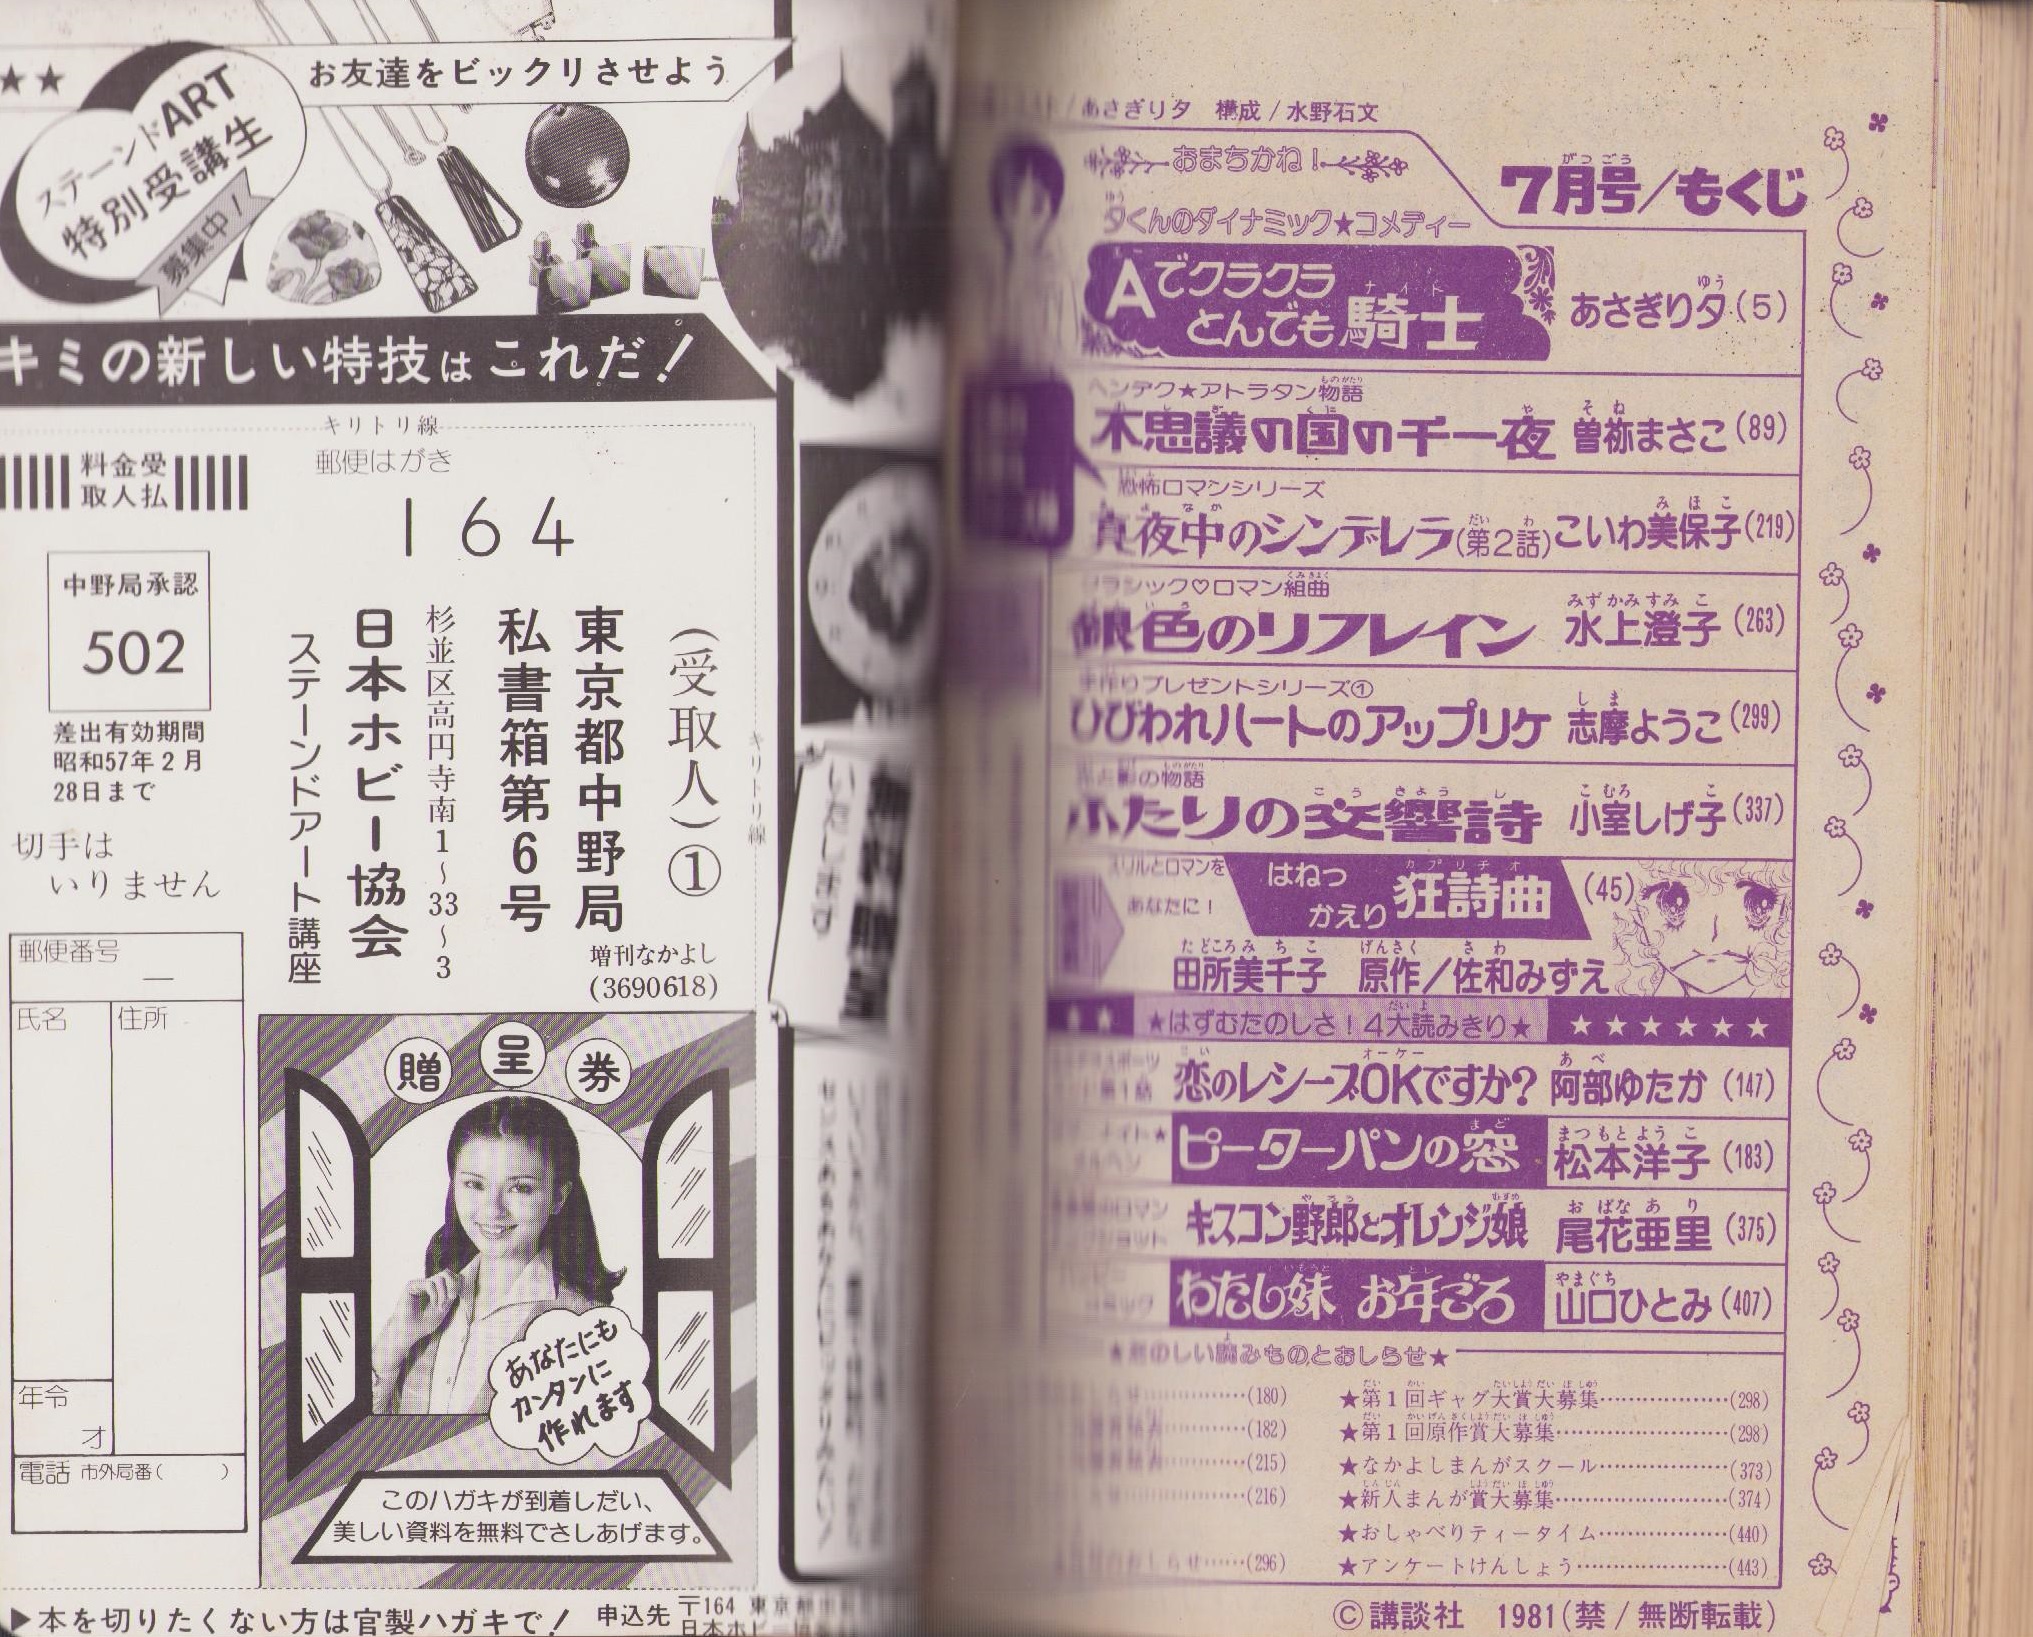 ★★
お友達をビックリさせよう
ステーンドART
特別受講生
募集中!
キミの新しい特技はこれだ!
キリトリ線
料金受
取人払
郵便はがき
164
中野局承認
502
差出有効期間
昭和57年2月
28日まで
切手は
いりません
(受取人)①
東京都中野局
私書箱第6号
杉並区高円寺南1~33~3
日本ホビー協会
ステーンドアート講座
増刊なかよし
(3690618)
キリトリ線
郵便番号
氏名
住所
年令
才
電話 市外局番( )
贈呈券
あなたにも
カンタンに
作れます
このハガキが到着しだい、
美しい資料を無料でさしあげます。
▶本を切りたくない方は官製ハガキで! 申込先 〒164 東京都
日本ホビー協
いたします
/あさぎり夕 構成/水野石文
7月号/もくじ
おまちかね!
夕くんのダイナミック★コメディー
Aでクラクラ
とんでも騎士 あさぎり夕(5)
ヘンテク★アトラタン物語
不思議の国の千一夜 曽祢まさこ(89)
恐怖ロマンシリーズ
真夜中のシンデレラ(第2話) こいわ美保子(219)
クラシック♡ロマン組曲
銀色のリフレイン 水上澄子(263)
手作りプレゼントシリーズ①
ひびわれハートのアップリケ 志摩ようこ(299)
光と影の物語
ふたりの交響詩 小室しげ子(337)
スリルとロマンを
あなたに!
はねっかえり狂詩曲(45)
田所美千子 原作/佐和みずえ
★はずむたのしさ!4大読みきり★ ★★★★★★
恋のレシーブOKですか? 阿部ゆたか(147)
ピーターパンの窓 松本洋子(183)
キスコン野郎とオレンジ娘 尾花亜里(375)
わたし妹 お年ごろ 山口ひとみ(407)
★たのしい読みものとおしらせ★
(180)
(182)
(215)
(216)
おしらせ……(296)
★第1回ギャグ大賞大募集……(298)
★第1回原作賞大募集……(298)
★なかよしまんがスクール……(373)
★新人まんが賞大募集……(374)
★おしゃべりティータイム……(440)
★アンケートけんしょう……(443)
©講談社 1981(禁/無断転載)